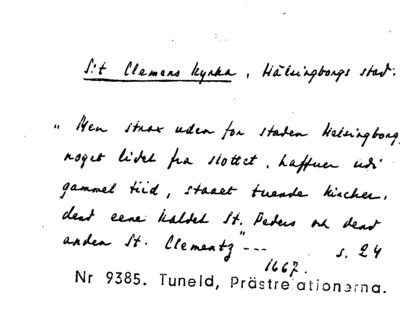 S:t Clemens kyrka, Hälsingborgs stad.
"Men strax uden for staden Helsingborg,
noget lidet fra slottet, haffuer udi
gammel tiid, staaet tuende kircher,
dend eene kaldet St. Peders och dend
anden St. Clementz"--- s. 24
1667.
Nr 9385. Tuneld, Prästrelationerna.